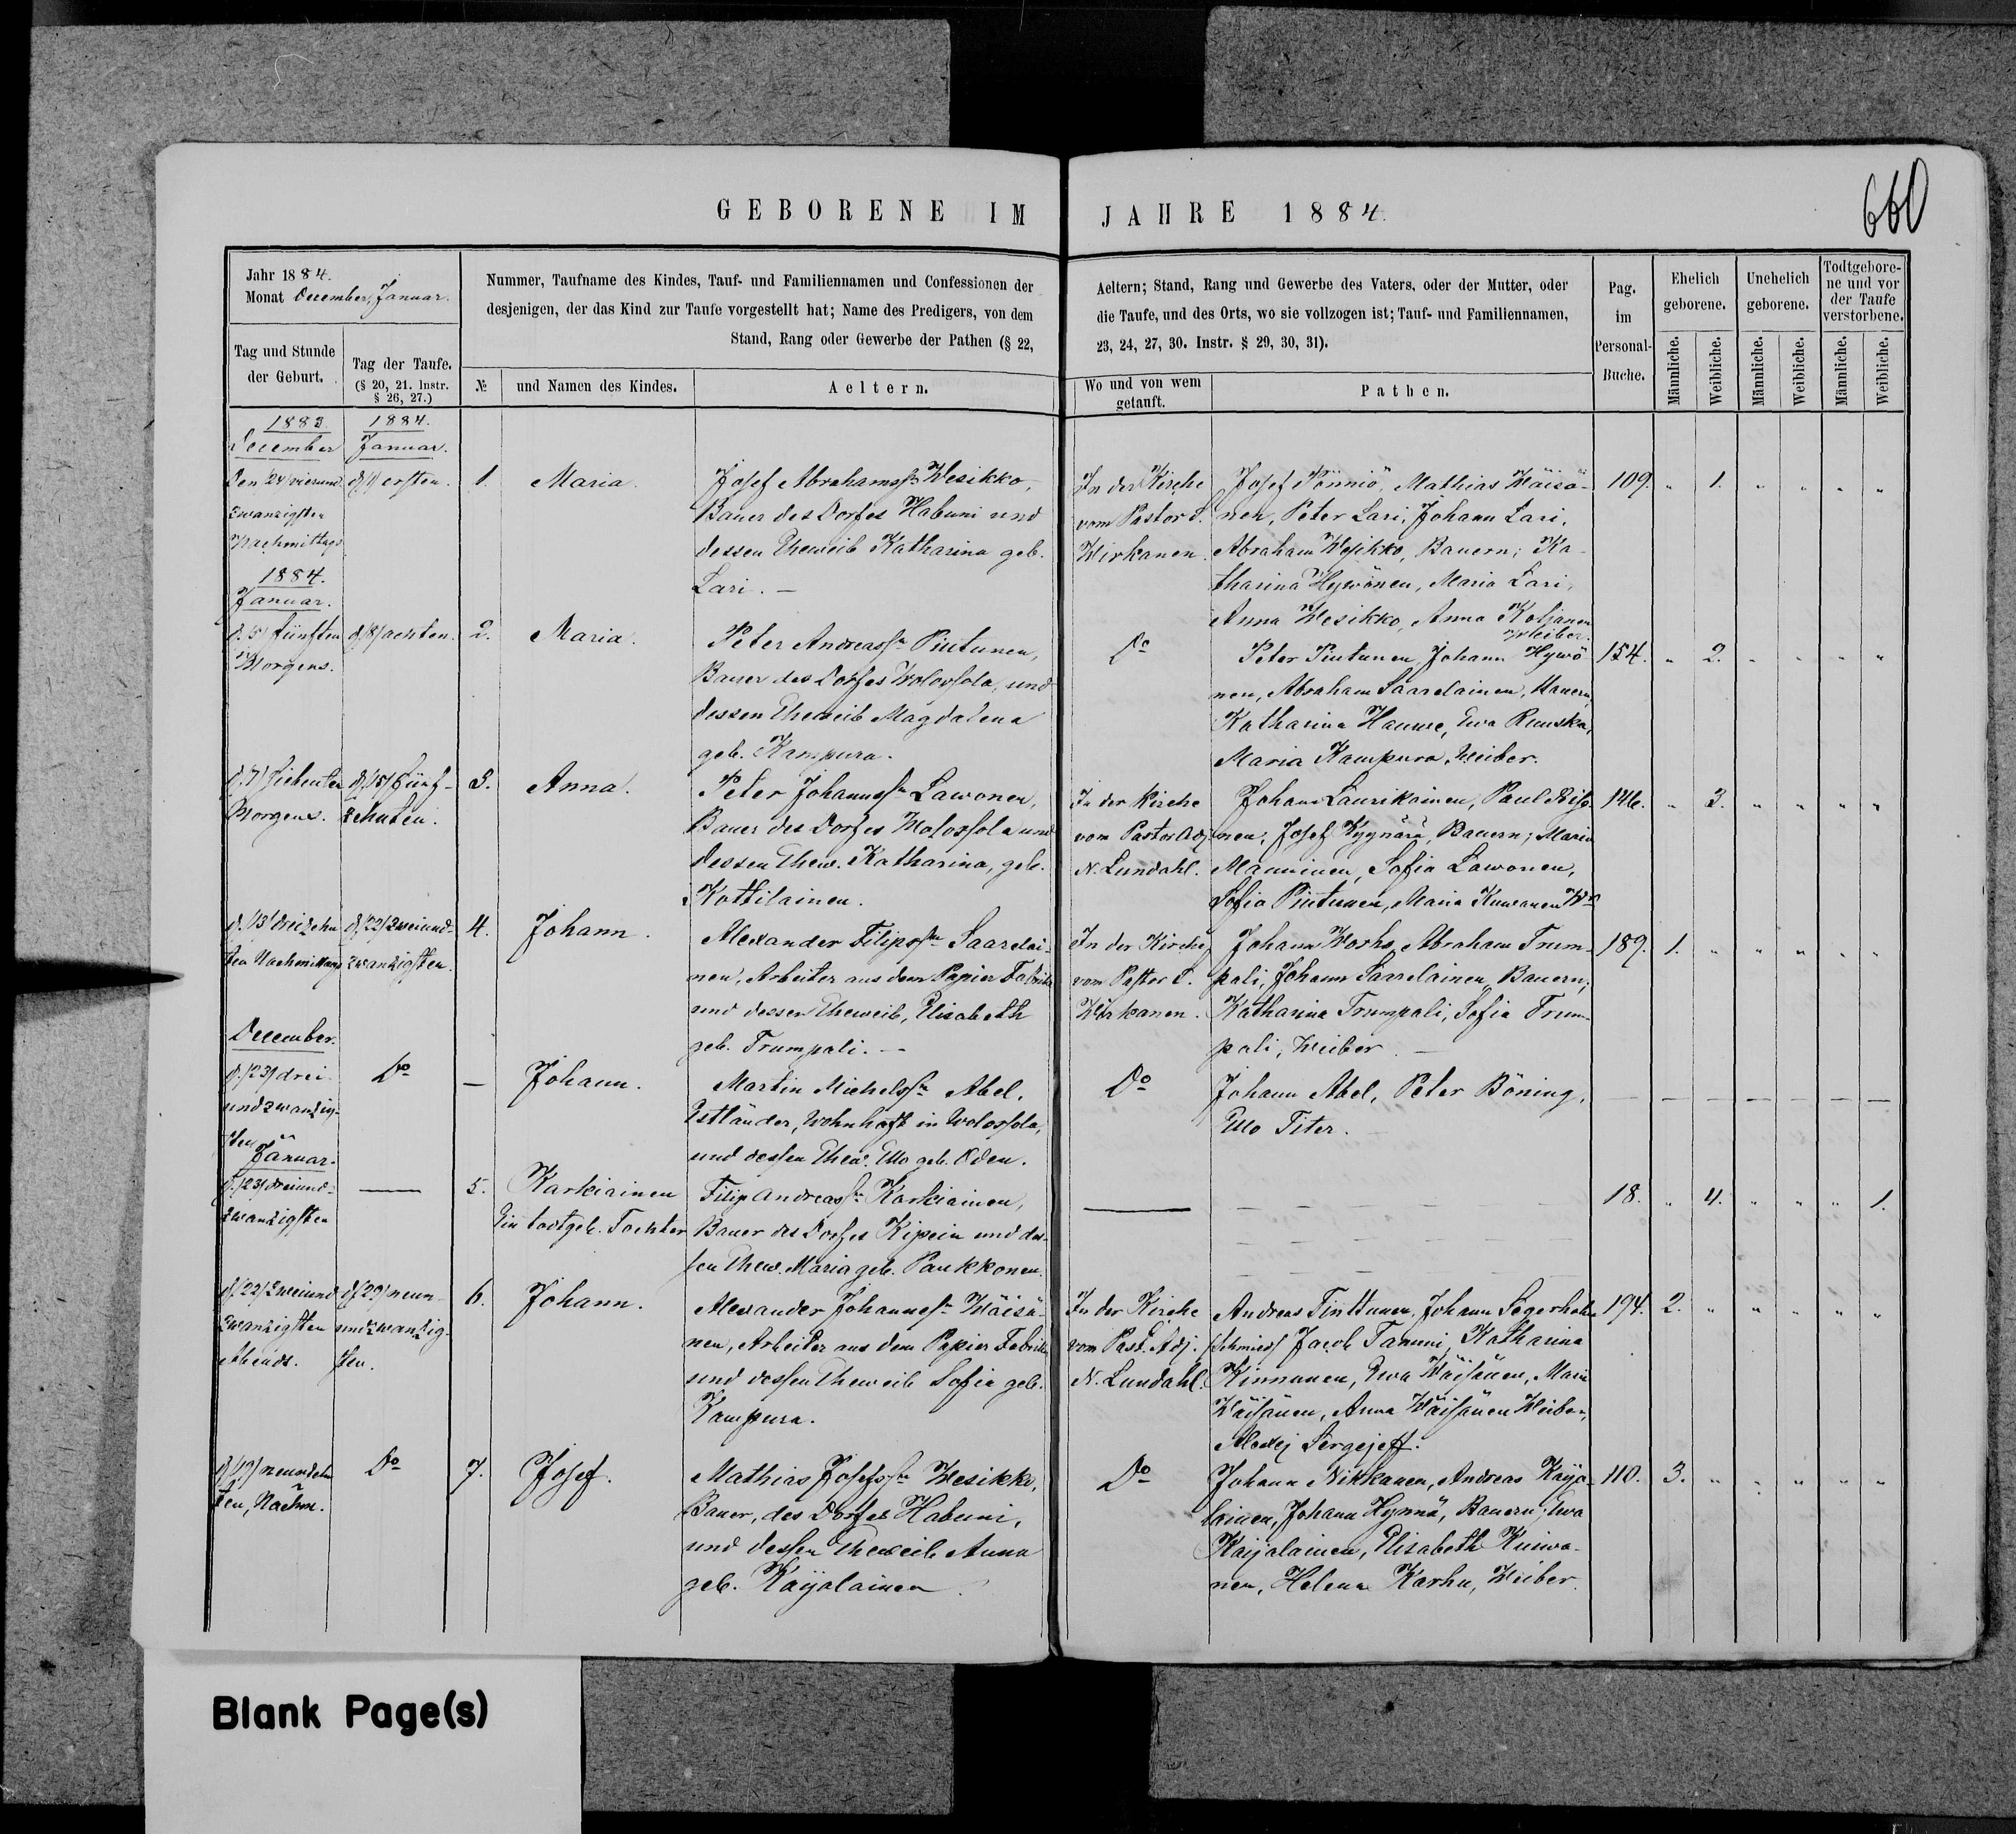 GEBORENE IM JAHRE 1884.
660
Jahr 1884.
Monat December, Januar.
Tag und Stunde
der Geburt.
Tag der Taufe.
(§ 20, 21. Instr.
§ 26, 27.)
Nummer, Taufname des Kindes, Tauf- und Familiennamen und Confessionen der
desjenigen, der das Kind zur Taufe vorgestellt hat; Name des Predigers, von dem
Stand, Rang oder Gewerbe der Pathen (§ 22,
№
und Namen des Kindes.
Aeltern.
Aeltern; Stand, Rang und Gewerbe des Vaters, oder der Mutter, oder
die Taufe, und des Orts, wo sie vollzogen ist; Tauf- und Familiennamen,
23, 24, 27, 30. Instr. § 29, 30, 31).
Wo und von wem
getauft.
Pathen.
Pag.
im
Personal-
Buche.
Ehelich
geborene.
Unehelich
geborene.
Todtgebore-
ne und vor
der Taufe
verstorbene.
Männliche.
Weibliche.
Männliche.
Weibliche.
Männliche.
Weibliche.
1883
December
1884.
Januar.
Den /24/ vierund-
zwanzigsten
Nachmittags
d. /1/ ersten.
1.
Maria.
Josef Abrahamssn Wesikko,
Bauer des Dorfes Habuni und
dessen Eheweib Katharina geb.
Lari. —
In der Kirche
vom Pastor S.
Wirkanen.
Josef Pönniö, Mathias Wäisä-
nen, Peter Lari, Johann Lari,
Abraham Wesikko, Bauern; Ka-
tharina Hywönen, Maria Lari,
Anna Wesikko, Anna Koljanen
Weiber.
109. " 1. " " " "
1884.
Januar.
d. /5/ fünften
Morgens.
d. /8/ achten.
2.
Maria.
Peter Andreassn Pintunen,
Bauer des Dorfes Wolossola, und
dessen Eheweib Magdalena
geb. Kampura.
Do
Peter Pintunen, Johann Hywö-
nen, Abraham Saarelainen, Bauern,
Katharina Hauwe, Ewa Ruuska,
Maria Kampura, Weiber.
154. " 2. " " " "
d. /7/ siebenten
Morgens.
d. /15/ fünf-
zehnten.
3.
Anna.
Peter Johannssn Lawonen,
Bauer des Dorfes Wolossola und
dessen Ehew. Katharina, geb.
Kottilainen.
In der Kirche
vom Pastor Adj.
N. Lundahl.
Johann Laurikainen, Paul
nen, Josef Kygnärä, Bauern; Maria
Manninen, Sofia Lawonen,
Sofia Pintunen, Maria
146. " 3. " " " "
d. /13/ dreizehn-
ten Nachmittags
d. /22/ zweiund-
zwanzigsten.
4.
Johann.
Alexander Filipssn Saarelai-
nen, Arbeiter aus dem Papier Fabrike
und dessen Eheweib, Elisabeth
geb. Trumpali. —
In der Kirche
vom Pastor S.
Wirkanen.
Johann Worho, Abraham Trum-
pali, Johann Saarelainen, Bauern;
Katharina Trumpali, Sofia Trum-
pali, Weiber. —
189. 1. " " " " "
December.
d. /23/ drei-
undzwanzig-
sten
Do
—
Johann.
Martin Michelssn Abel,
Estländer, wohnhaft in Wolossola,
und dessen Ehew. Ello geb. Oden.
Do
Johann Abel, Peter Böning,
Ello Titer.
Januar.
d. /23/ dreiund-
zwanzigsten
—
5.
Karkiainen
Ein todtgeb. Tochter
Filip Andreassn Karkiainen,
Bauer des Dorfes Kipein und des-
sen Ehew. Maria geb. Paukkonen.
18. " 4. " " " 1.
d. /22/ zweiund
zwanzigsten
Abends.
d. /29/ neun-
undzwanzig-
sten.
6.
Johann.
Alexander Johannssn Wäisä-
nen, Arbeiter aus dem Papier Fabrike
und dessen Eheweib Sofia geb.
Kampura.
In der Kirche
vom Past. Adj.
N. Lundahl.
Andreas Tinttunen, Johann Segerholm
/Schmied/ Jacob Tammi, Katharina
Kinnunen, Ewa Wäisänen, Maria
Wäisänen, Anna Wäisänen Weiber,
Alexej Sergejeff.
194. 2. " " " " "
d. /19/ neunzehn
ten, Nachm.
Do
7.
Josef.
Mathias Josefssn Wesikko,
Bauer, des Dorfes Habuni,
und dessen Eheweib Anna
geb. Käyjalainen
Do
Johann Nikkanen, Andreas Käyja-
lainen, Johann Hynnä, Bauern; Ewa
Käijalainen, Elisabeth Kuiwa-
nen, Helena Karhu, Weiber.
110. 3. " " " " "
Blank Page(s)